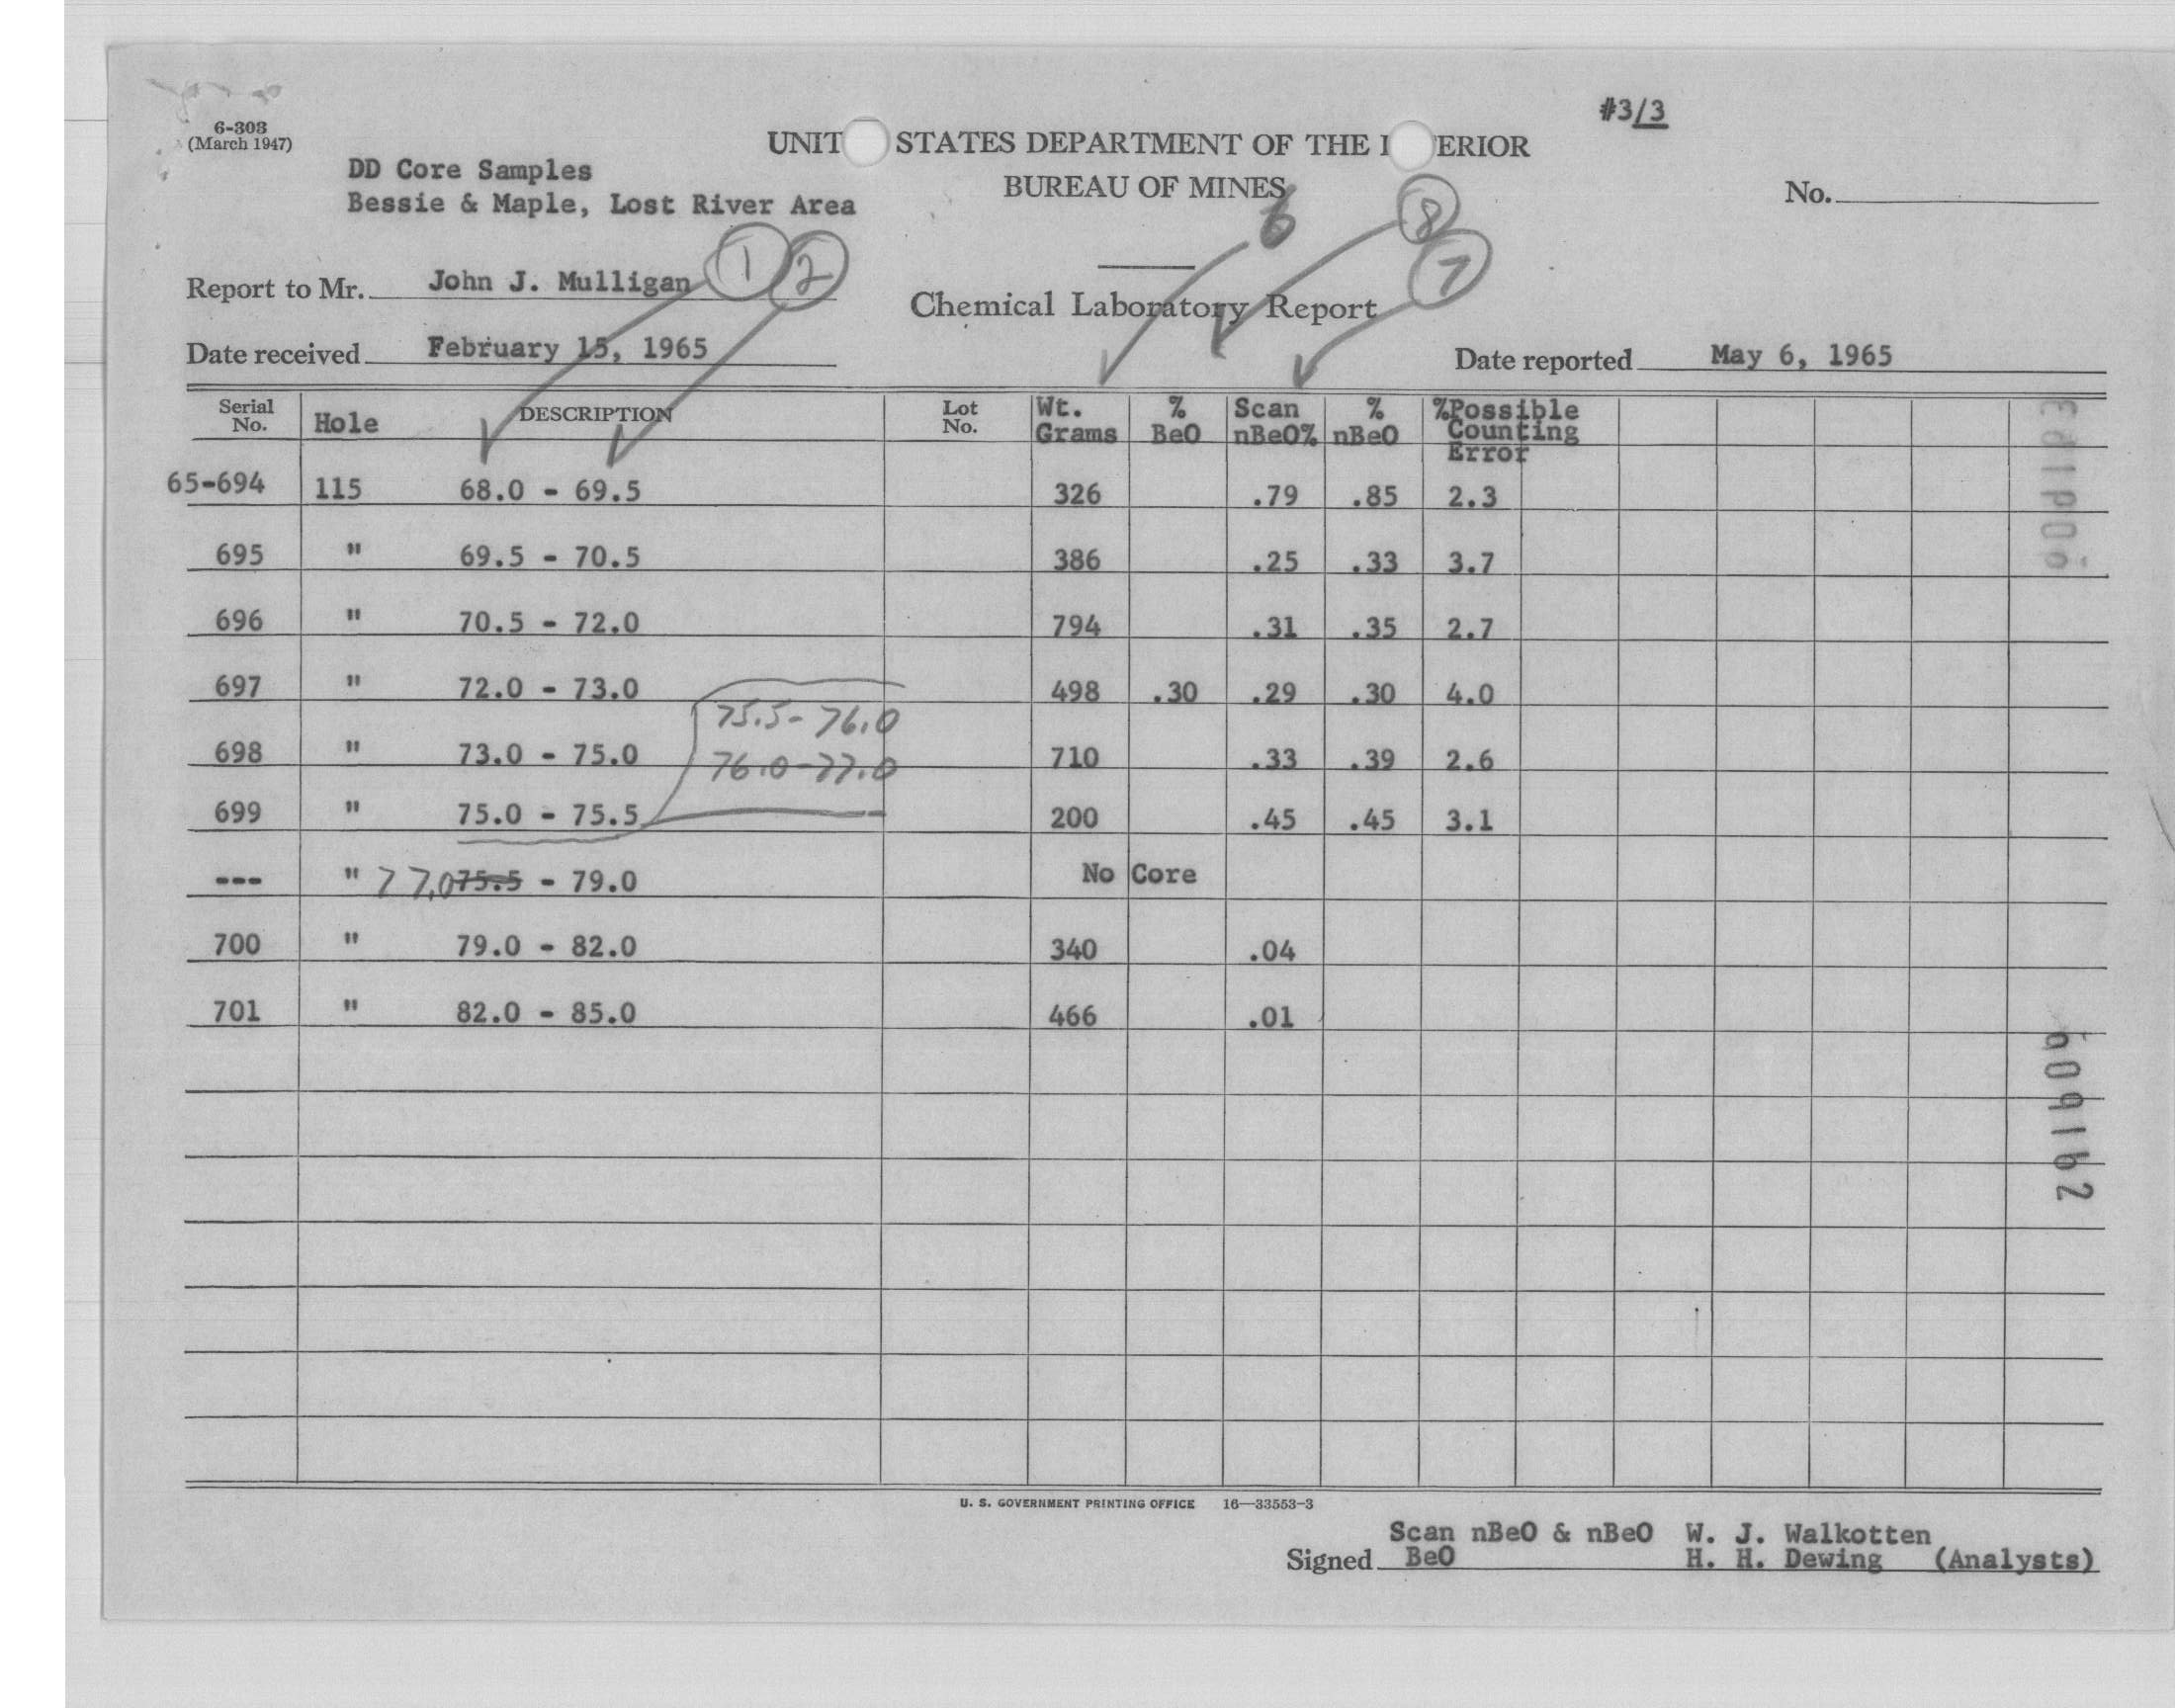 #3/3
6-303
(March 1947)
UNIT STATES DEPARTMENT OF THE I ERIOR
DD Core Samples
BUREAU OF MINES
No.
Bessie & Maple, Lost River Area
6 8
1 2 7
Report to Mr. John J. Mulligan
Chemical Laboratory Report
Date received February 15, 1965
Date reported May 6, 1965
Serial No. Hole DESCRIPTION Lot No. Wt. Grams % BeO Scan nBeO% % nBeO %Possible Counting Error
65-694 115 68.0 - 69.5 326 .79 .85 2.3
695 " 69.5 - 70.5 386 .25 .33 3.7
696 " 70.5 - 72.0 794 .31 .35 2.7
697 " 72.0 - 73.0 498 .30 .29 .30 4.0
75.5 - 76.0
698 " 73.0 - 75.0 710 .33 .39 2.6
76.0 - 77.0
699 " 75.0 - 75.5 200 .45 .45 3.1
--- " 77.0 75.5 - 79.0 No Core
700 " 79.0 - 82.0 340 .04
701 " 82.0 - 85.0 466 .01
U. S. GOVERNMENT PRINTING OFFICE 16—33553-3
Scan nBeO & nBeO W. J. Walkotten
Signed BeO H. H. Dewing (Analysts)